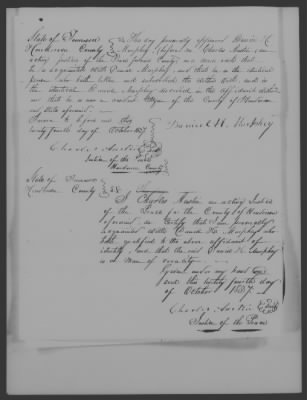 State of Tennessee
Henderson County
This day personally appeared Daniel W
Murphy before me Charles Austin an
acting Justice of the Peace for said County and made oath that
he is acquainted with Daniel Murphy, and that he is the identical
person who both and subscribed the within oath, and is
the identical Daniel Murphy described in the Affidavit
and that he is now a resident Citizen of the County of Henderson
and State aforesaid
Sworn to before me this
twenty fourth day of October 1857
Daniel W. Murphey
Charles Austin
Justice of the Peace
Henderson County
State of Tennessee
Henderson County
I Charles Austin an acting Justice
of the Peace for the County of Henderson
aforesaid do Certify that I am personally
acquainted with Daniel W. Murphey who
has qualified to the above affidavit of
identity, and that the said Daniel W. Murphey
is a Man of veracity
Given under my hand
and this twenty fourth day
of October 1857
Charles Austin
Justice of the Peace